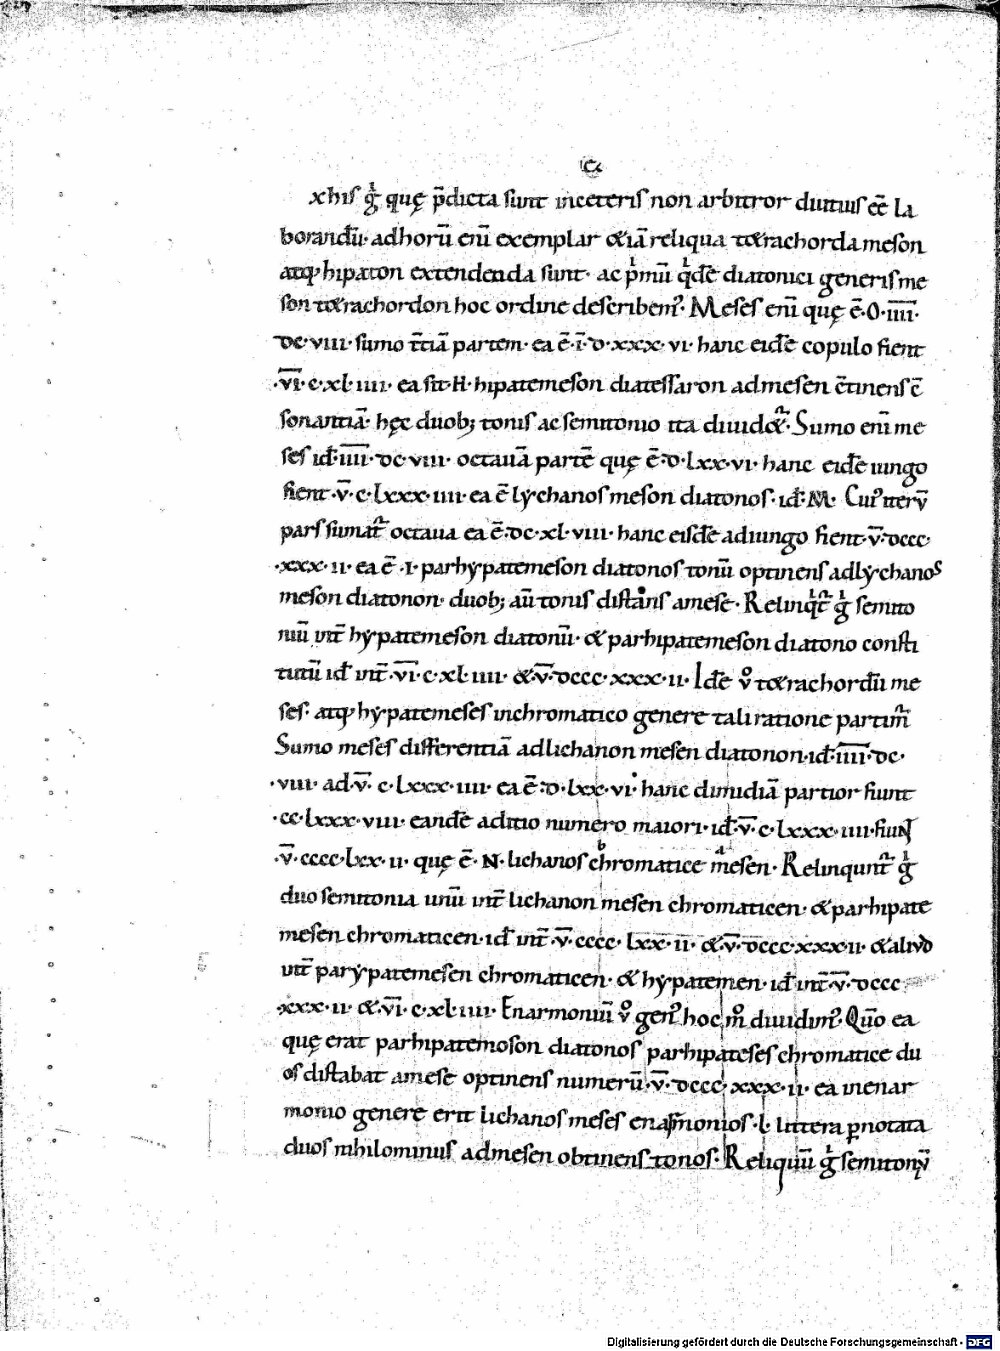 c.
xhis g̊ quę p̄dicta sunt inceteris non arbitror diutius eē la
borandū· adhorū enī exemplar &iā reliqua t&rachorda meson
atq; hipaton extendenda sunt· ac pͥmū qͥdē diatonici generis me
son t&rachordon hoc ordine describem᾽· Meses enī quę ē·O·IIII·
DC·VIII· sumo t̄ciā partem· ea ē·ī·D·XXX·VI· hanc eidē copulo fient
·V̄I·C·XL·IIII· ea sit·H· hipatemeson diatessaron admesen c̄tinens c̄
sonantiā· hęc duob; tonis ac semitonio ita diuid&᷑· Sumo enī me
ses id·IIII·DC·VIII· octauā partē quę ē·D·LXX·VI· hanc eidē iungo
fient·V̄·C·LXXX·IIII· ea ē lychanos meson diatonos· id·M· Cui᾽ iterū
pars sumat᷑ octaua ea ē·DC·XL·VIII· hanc eisdē adiungo fient·V̄·DCCC·
·XXX·II· ea ē·I· parhypatemeson diatonos tonū optinens adlychanos
meson diatonon· duob; aū tonis distans amese· Relinqͥt᷑ gͥ semito
niū int̄ hypatemeson diatonū· & parhipatemeson diatono consti
tutū id int̄·V̄I·C·XL·IIII· &·V̄·DCCC·XXX·II· Idē v° t&rachordū me
ses· atq; hypatemeses inchromatico genere tali ratione partim᷑
Sumo meses differentiā adlichanon mesen diatonon·id·IIII·DC·
·VIII· ad·V̄·C·LXXX·IIII· ea ē·D·LXX·VI· hanc dimidiā partior fiunt
·CC·LXXX·VIII· eandē aditio numero maiori·id·V̄·C·LXXX·IIII·fiuɴ
·V̄·CCCC·LXX·II· quę ē·N· lichanos chromatice mesen· Relinqunt᷑ gͥ
duo semitonia unū int̄ lichanon mesen chromaticen· & parhipate
mesen chromaticen·id int̄·V̄·CCCC·LXX·II· &·V̄·DCCC·XXX·II· & aliud
int̄ parypatemesen chromaticen· & hypatemen· id int̄·V̄·DCCC
·XXX·II· &·V̄I·C·XL·IIII· Enarmoniū v° gen᾽ hoc m° diuidim᾽· Quō ea
quę erat parhipatemoson diatonos parhipateses chromatice du
os distabat amese optinens numerū·V̄·DCCC·XXX·II· ea inenar
monio genere erit lichanos meses enarmonios·L· littera p̱notata
duos nihilominus admesen obtinens tonos· Reliquū gͥ semitonyū
Digitalisierung gefördert durch die Deutsche Forschungsgemeinschaft - DFG